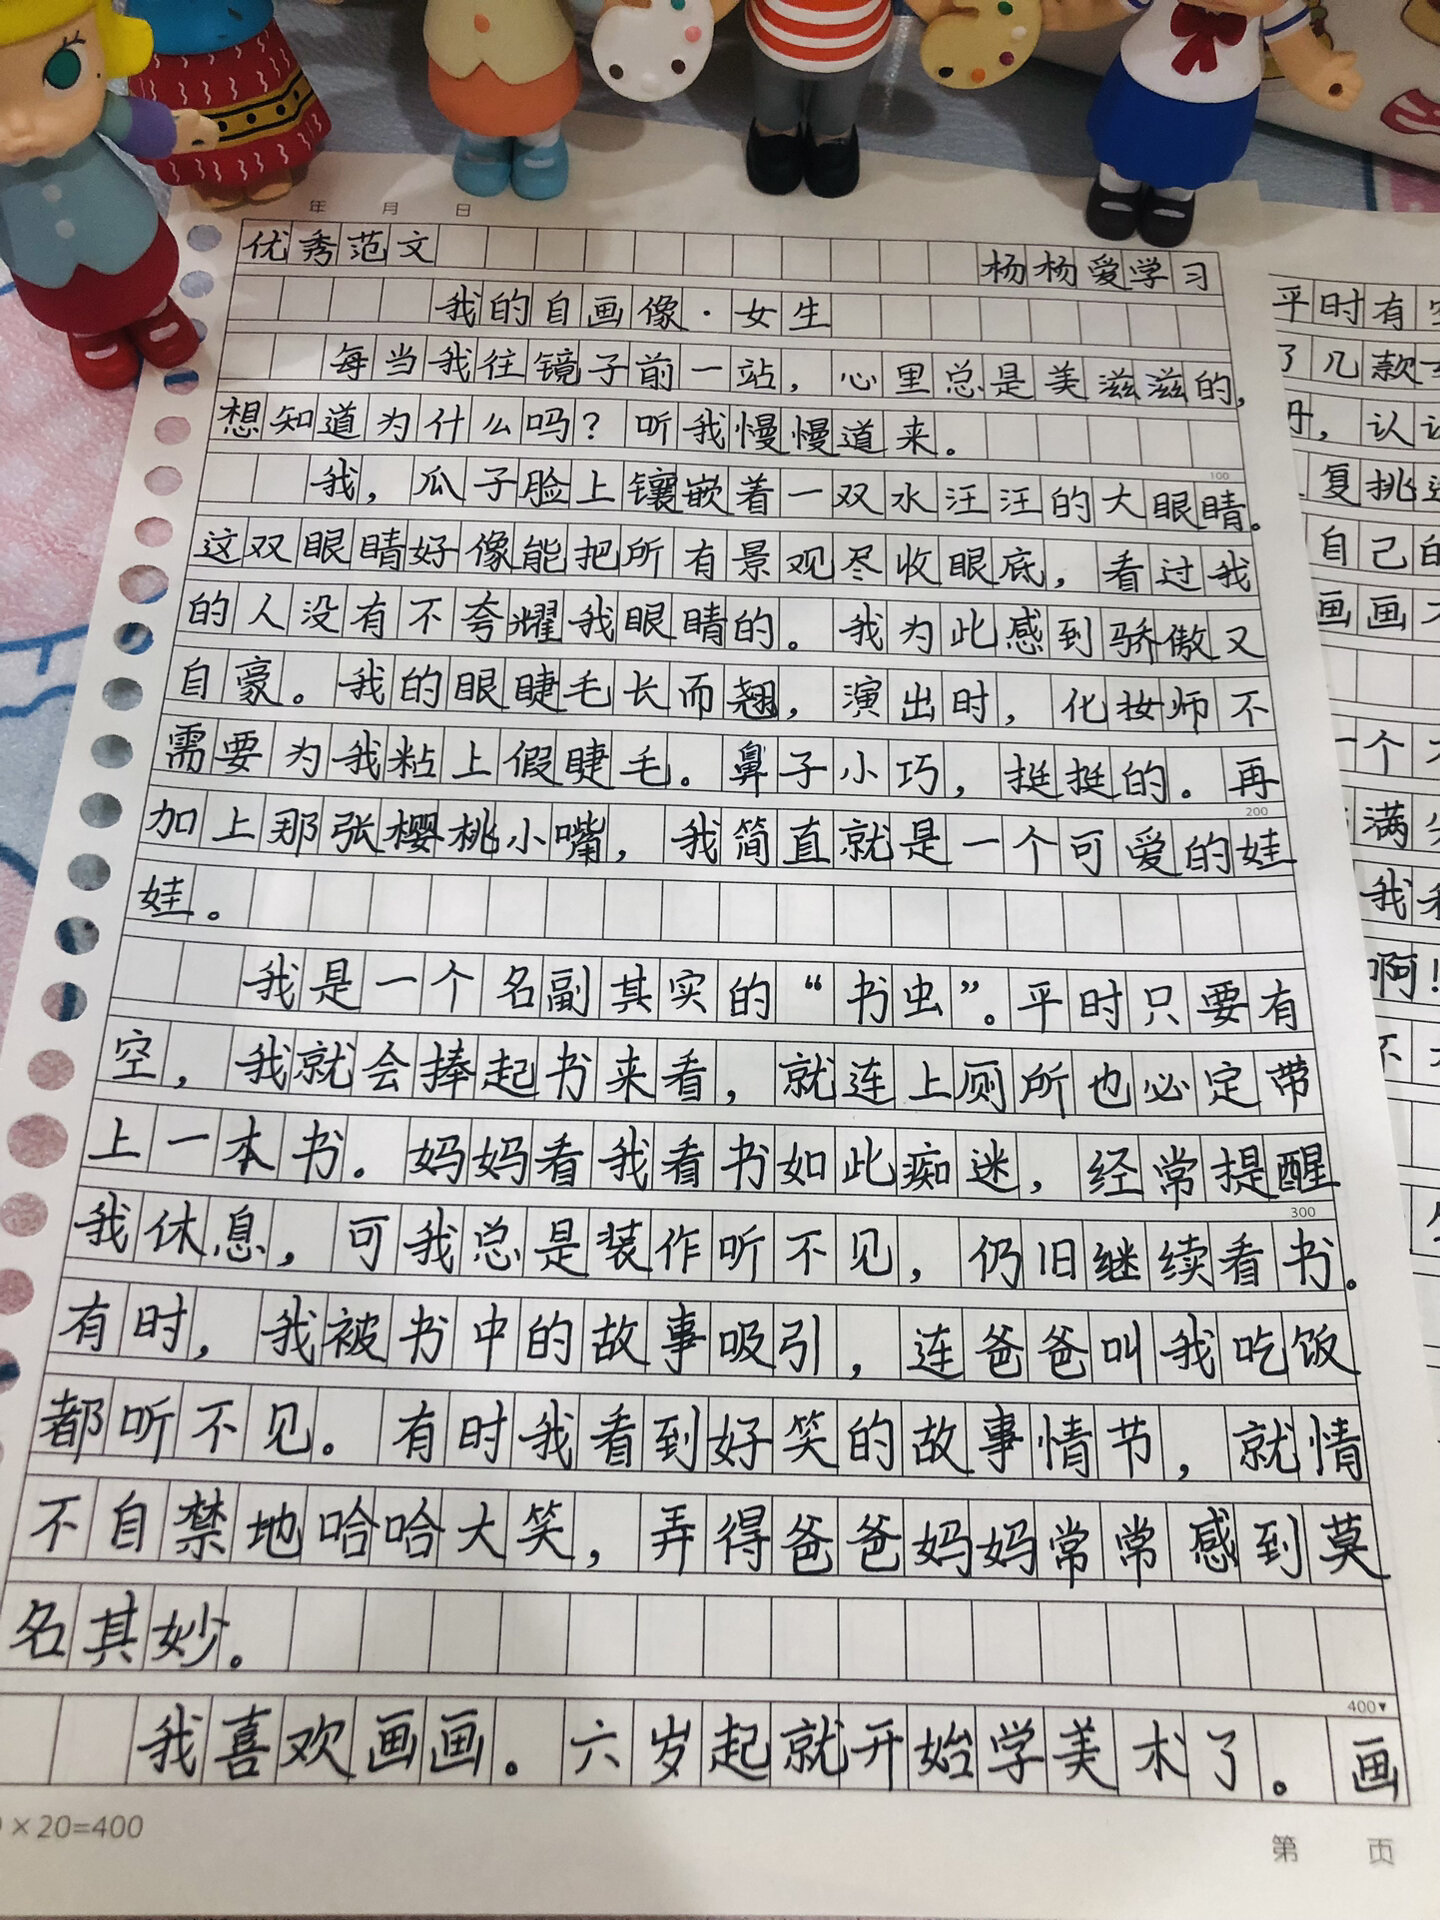 年 月 日
优秀范文 杨杨爱学习
我的自画像·女生
每当我往镜子前一站，心里总是美滋滋的，
想知道为什么吗？听我慢慢道来。
100
我，瓜子脸上镶嵌着一双水汪汪的大眼睛。
这双眼睛好像能把所有景观尽收眼底，看过我
的人没有不夸耀我眼睛的。我为此感到骄傲又
自豪。我的眼睫毛长而翘，演出时，化妆师不
需要为我粘上假睫毛。鼻子小巧，挺挺的。再
200
加上那张樱桃小嘴，我简直就是一个可爱的娃
娃。
我是一个名副其实的“书虫”。平时只要有
空，我就会捧起书来看，就连上厕所也必定带
上一本书。妈妈看我看书如此痴迷，经常提醒
300
我休息，可我总是装作听不见，仍旧继续看书。
有时，我被书中的故事吸引，连爸爸叫我吃饭
都听不见。有时我看到好笑的故事情节，就情
不自禁地哈哈大笑，弄得爸爸妈妈常常感到莫
名其妙。
400▼
我喜欢画画。六岁起就开始学美术了。画
×20=400
第 页
平时有
了几款
，认
复挑
自己的
画画
一个
满
我
啊！